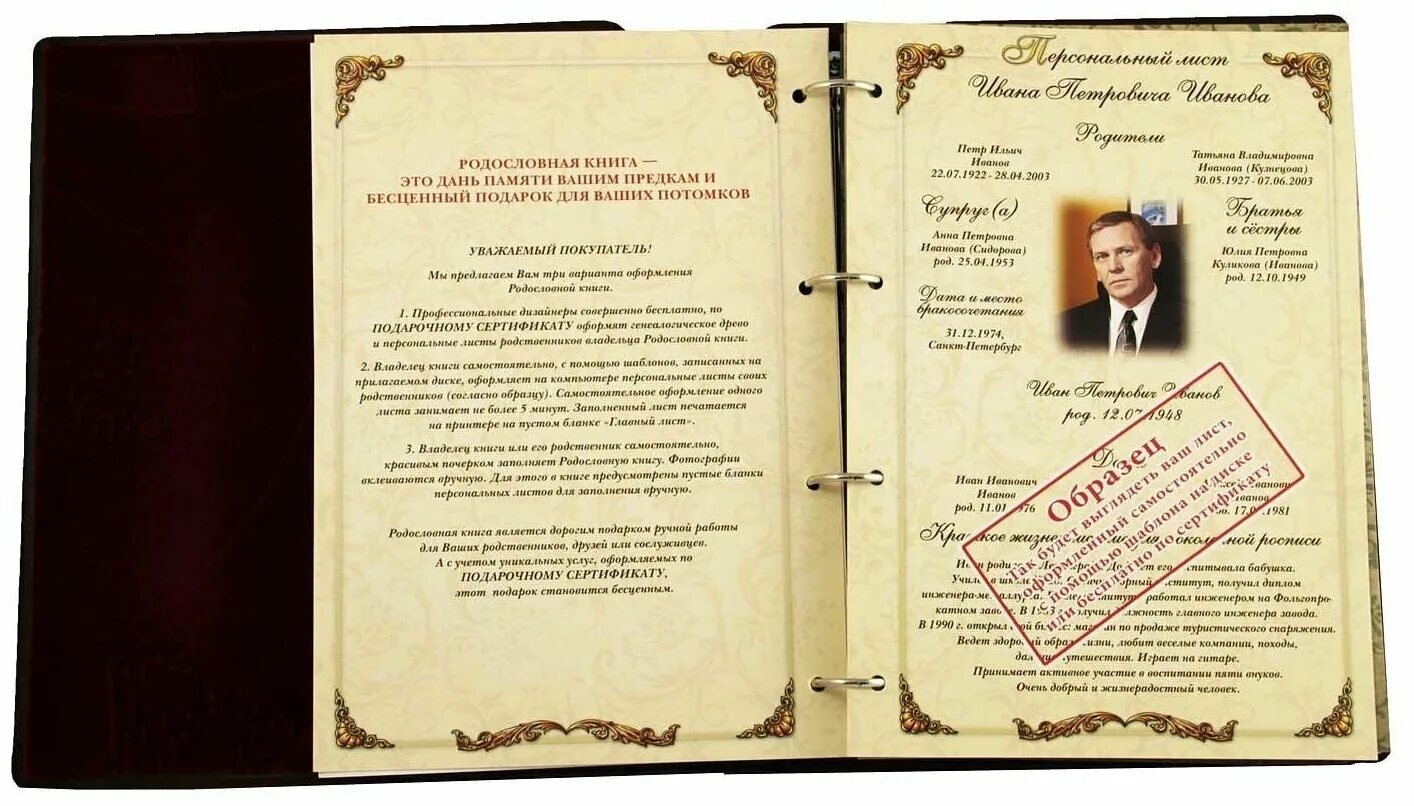 РОДОСЛОВНАЯ КНИГА —
ЭТО ДАНЬ ПАМЯТИ ВАШИМ ПРЕДКАМ И
БЕСЦЕННЫЙ ПОДАРОК ДЛЯ ВАШИХ ПОТОМКОВ
УВАЖАЕМЫЙ ПОКУПАТЕЛЬ!
Мы предлагаем Вам три варианта оформления
Родословной книги.
1. Профессиональные дизайнеры совершенно бесплатно, по
ПОДАРОЧНОМУ СЕРТИФИКАТУ оформят генеалогическое древо
и персональные листы родственников владельца Родословной книги.
2. Владелец книги самостоятельно, с помощью шаблонов, записанных на
прилагаемом диске, оформляет на компьютере персональные листы своих
родственников (согласно образцу). Самостоятельное оформление одного
листа занимает не более 5 минут. Заполненный лист печатается
на принтере на пустом бланке «Главный лист».
3. Владелец книги или его родственник самостоятельно,
красивым почерком заполняет Родословную книгу. Фотографии
вклеиваются вручную. Для этого в книге предусмотрены пустые бланки
персональных листов для заполнения вручную.
Родословная книга является дорогим подарком ручной работы
для Ваших родственников, друзей или сослуживцев.
А с учетом уникальных услуг, оформляемых по
ПОДАРОЧНОМУ СЕРТИФИКАТУ,
этот подарок становится бесценным.
Персональный лист
Ивана Петровича Иванова
Родители
Петр Ильич
Иванов
22.07.1922 - 28.04.2003
Татьяна Владимировна
Иванова (Кузнецова)
30.05.1927 - 07.06.2003
Супруг(а)
Анна Петровна
Иванова (Сидорова)
род. 25.04.1953
Братья
и сёстры
Юлия Петровна
Куликова (Иванова)
род. 12.10.1949
Дата и место
бракосочетания
31.12.1974,
Санкт-Петербург
Иван Петрович Иванов
род. 12.07.1948
Иван Иванович
Иванов
род. 11.01 76
Иванов
17.0 .1981
Краткое жизне
ной росписи
Иван роди его воспитывала бабушка.
Учил в школе институт, получил диплом
инженера-металлурга. работал инженером на Фольгопро-
катном заводе. В 19 3 получил должность главного инженера завода.
В 1990 г. открыл свой бизнес: магазин по продаже туристического снаряжения.
Ведет здоровый образ жизни, любит веселые компании, походы,
дальние путешествия. Играет на гитаре.
Принимает активное участие в воспитании пяти внуков.
Очень добрый и жизнерадостный человек.
Образец
Так будет выглядеть ваш лист,
оформленный самостоятельно
с помощью шаблона на диске
или бесплатно по сертификату